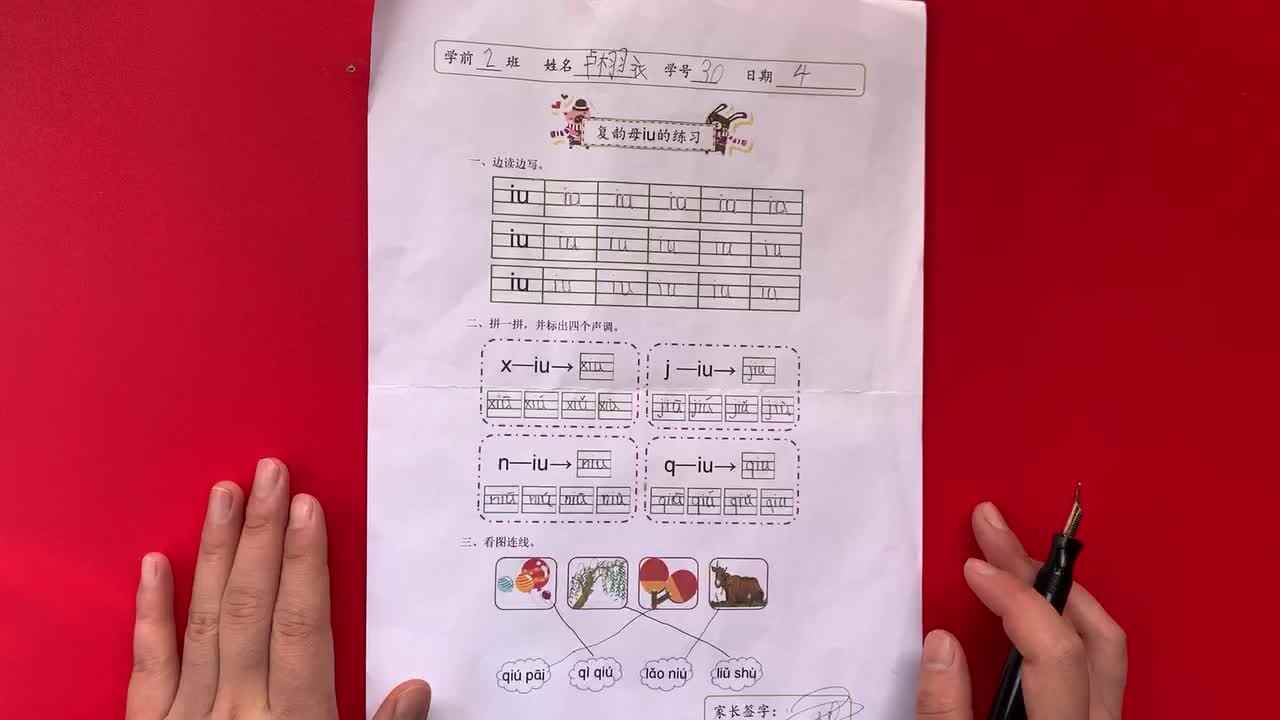 学前 2 班 姓名 学号 30 日期 4
复韵母iu的练习
一、边读边写。
iu iu iu iu iu iu
iu iu iu iu iu iu
iu iu iu iu iu iu
二、拼一拼，并标出四个声调。
x—iu→ xiu j—iu→ jiu
xiū xiú xiǔ xiù jiū jiú jiǔ jiù
n—iu→ niu q—iu→ qiu
niū niú niǔ niù qiū qiú qiǔ qiù
三、看图连线。
qiú pāi qì qiú lǎo niú liǔ shù
家长签字：